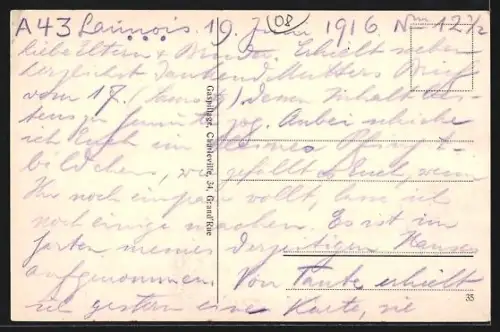 A43 Launois. 19. Juni 1916. Nm 12½
08
liebe Eltern & Bruder. Erhielt soeben
herzlichst dankend Mutters Brief
vom 17. (Samstg), dessen Inhalt bes-
tens zu gemüte zog. Anbei schicke
ich Euch ein kleines Pfingst-
bildchen, wie gefällt es Euch, wenn
Ihr noch einpaar wollt, lasse ich
noch einige machen. Es ist im
Garten meines derzeitigen Hauses
aufgenommen. Von Tante erhielt
ich gestern eine Karte, sie
Gaspillage, Charleville, 34, Grand'Rue
35